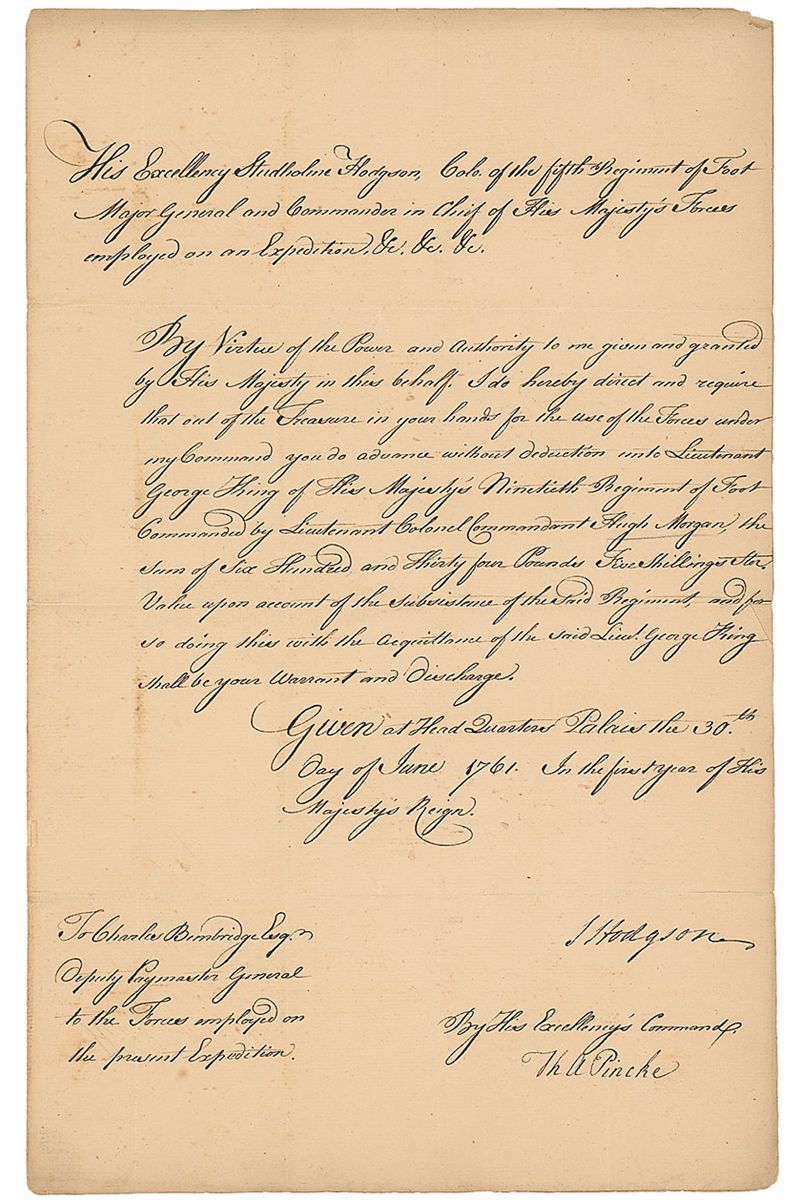 His Excellency Studholme Hodgson, Colo. of the fifth Regiment of Foot
Major General and Commander in Chief of His Majesty's Forces
employed on an Expedition, &c. &c. &c.
By Virtue of the Power and Authority to me given and granted
by His Majesty in this behalf. I do hereby direct and require
that out of the Treasure in your hands for the use of the Forces under
my Command you do advance without deduction unto Lieutenant
George King of His Majesty's Ninetieth Regiment of Foot
Commanded by Lieutenant Colonel Commandant Hugh Morgan, the
Sum of Six Hundred and thirty four Pounds Five Shillings Ster.
Value upon account of the Subsistance of the said Regiment, and for
so doing this with the Acquittance of the said Lieut. George King
shall be your Warrant and Discharge.
Given at Head Quarters Palais the 30.th
Day of June 1761. In the first year of His
Majesty's Reign.
To Charles Bembridge Esq.r
Deputy Paymaster General
to the Forces employed on
the present Expedition.
S Hodgson
By His Excellency's Command.
Th A Pincke